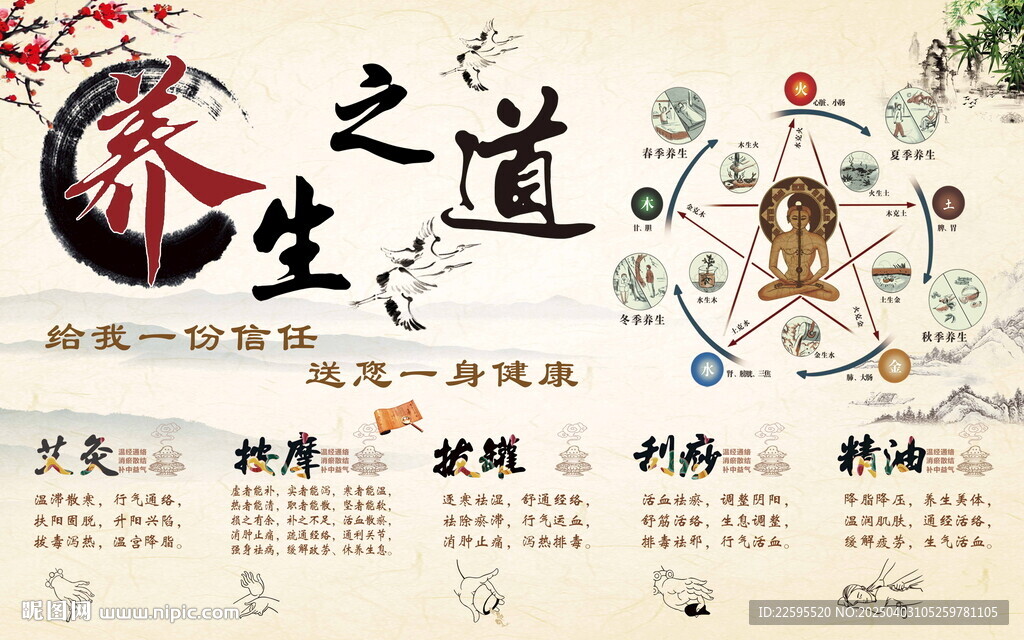 养生之道
给我一份信任
送您一身健康
火
心脏、小肠
春季养生
夏季养生
木生火
木克火
火生土
木
甘、胆
金克木
木克土
土
脾、胃
水生木
土生金
冬季养生
秋季养生
土克水
火克金
金生水
水
肾、膀胱、三焦
肺、大肠
金
艾灸
温经通络
消瘀散结
补中益气
温滞散寒，行气通络，
扶阳固脱，升阳兴陷，
拔毒泻热，温宫降脂。
按摩
温经通络
消瘀散结
补中益气
虚者能补，实者能泻，寒者能温，
热者能清，职者能散，坚者能软，
损之有余，补之不足，活血散瘀，
消肿止痛，疏通经络，通利关节，
强身祛病，缓解政劳、休养生息。
拔罐
温经通络
消瘀散结
补中益气
逐寒祛湿，舒通经络，
祛除瘀滞，行气运血，
消肿止痛，泻热排毒。
刮痧
温经通络
消瘀散结
补中益气
活血祛瘀，调整阴阳，
舒筋活络，生息调整，
排毒祛邪，行气活血。
精油
温经通络
消瘀散结
补中益气
降脂降压，养生美体，
温润肌肤，通经活络，
缓解疲劳，生气活血。
昵图网 www.nipic.com
ID:22595520 NO:20250403105259781105